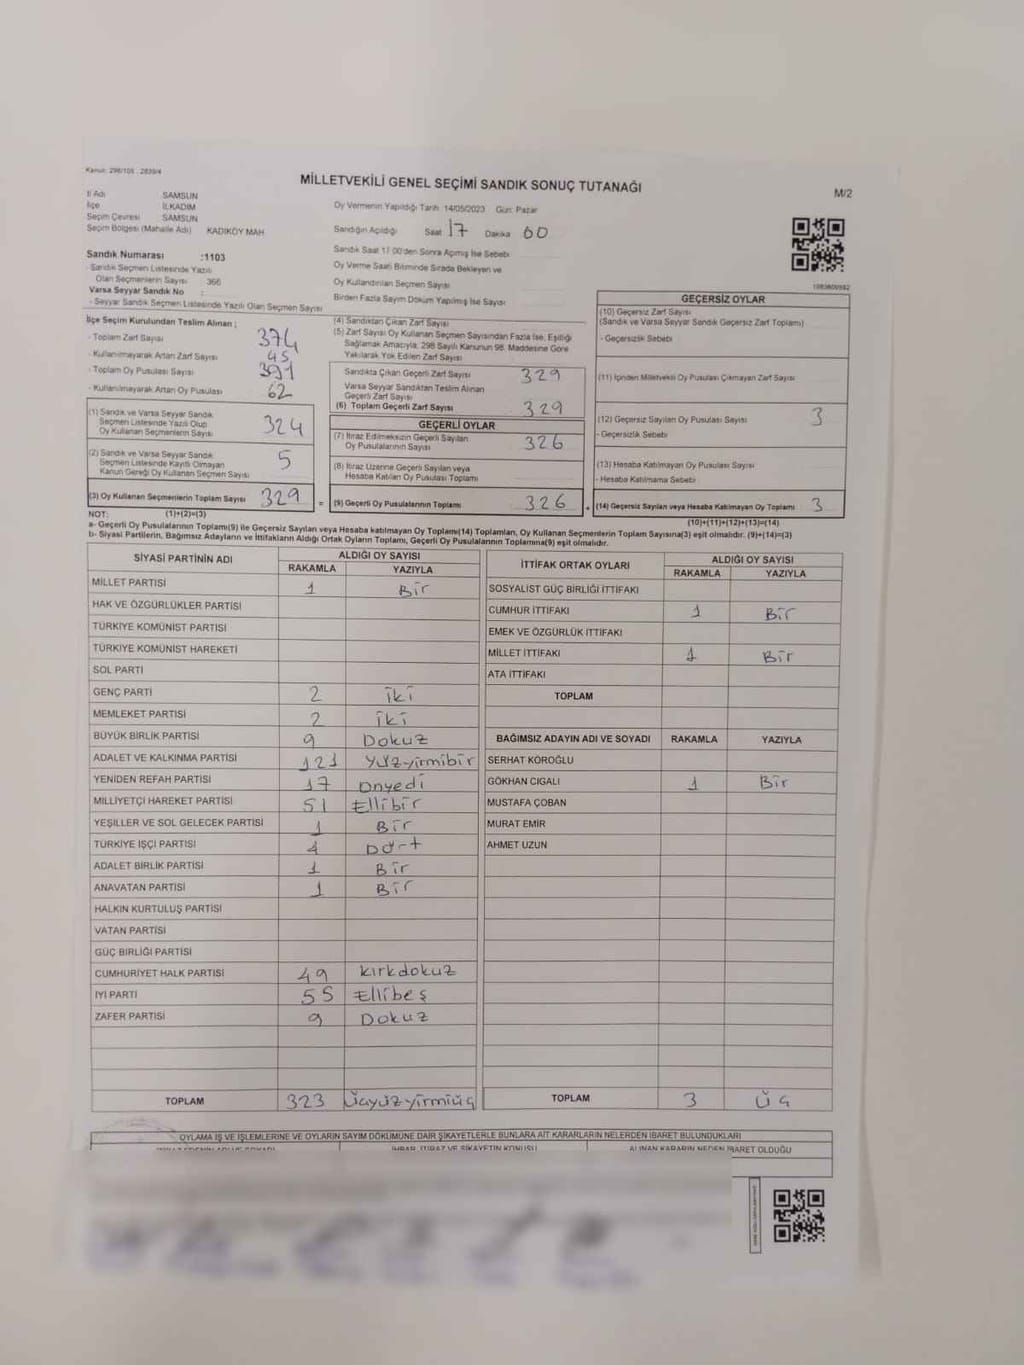 Kanun: 298/105 , 2839/4
MİLLETVEKİLİ GENEL SEÇİMİ SANDIK SONUÇ TUTANAĞI
M/2
İl Adı SAMSUN
İlçe İLKADIM
Seçim Çevresi SAMSUN
Seçim Bölgesi (Mahalle Adı) KADIKÖY MAH
Sandık Numarası :1103
- Sandık Seçmen Listesinde Yazılı
Olan Seçmenlerin Sayısı 366
Varsa Seyyar Sandık No :
- Seyyar Sandık Seçmen Listesinde Yazılı Olan Seçmen Sayısı
Oy Vermenin Yapıldığı Tarih 14/05/2023 Gün: Pazar
Sandığın Açıldığı Saat 17 Dakika 00
Sandık Saat 17.00'den Sonra Açılmış İse Sebebi
Oy Verme Saati Bitiminde Sırada Bekleyen ve
Oy Kullandırılan Seçmen Sayısı
Birden Fazla Sayım Döküm Yapılmış İse Sayısı
İlçe Seçim Kurulundan Teslim Alınan ;
- Toplam Zarf Sayısı 374
- Kullanılmayarak Artan Zarf Sayısı 45
- Toplam Oy Pusulası Sayısı 391
- Kullanılmayarak Artan Oy Pusulası 62
(1) Sandık ve Varsa Seyyar Sandık
Seçmen Listesinde Yazılı Olup
Oy Kullanan Seçmenlerin Sayısı 324
(2) Sandık ve Varsa Seyyar Sandık
Seçmen Listesinde Kayıtlı Olmayan
Kanun Gereği Oy Kullanan Seçmen Sayısı 5
(3) Oy Kullanan Seçmenlerin Toplam Sayısı 329
(4) Sandıktan Çıkan Zarf Sayısı
(5) Zarf Sayısı Oy Kullanan Seçmen Sayısından Fazla İse, Eşitliği
Sağlamak Amacıyla, 298 Sayılı Kanunun 98. Maddesine Göre
Yakılarak Yok Edilen Zarf Sayısı
Sandıkta Çıkan Geçerli Zarf Sayısı 329
Varsa Seyyar Sandıktan Teslim Alınan
Geçerli Zarf Sayısı
(6) Toplam Geçerli Zarf Sayısı 329
GEÇERLİ OYLAR
(7) İtiraz Edilmeksizin Geçerli Sayılan
Oy Pusulalarının Sayısı 326
(8) İtiraz Üzerine Geçerli Sayılan veya
Hesaba Katılan Oy Pusulası Toplamı
= (9) Geçerli Oy Pusulalarının Toplamı 326
1083600592
GEÇERSİZ OYLAR
(10) Geçersiz Zarf Sayısı
(Sandık ve Varsa Seyyar Sandık Geçersiz Zarf Toplamı)
- Geçersizlik Sebebi
(11) İçinden Milletvekili Oy Pusulası Çıkmayan Zarf Sayısı
(12) Geçersiz Sayılan Oy Pusulası Sayısı 3
- Geçersizlik Sebebi
(13) Hesaba Katılmayan Oy Pusulası Sayısı
- Hesaba Katılmama Sebebi
(14) Geçersiz Sayılan veya Hesaba Katılmayan Oy Toplamı 3
NOT: (1)+(2)=(3)
(10)+(11)+(12)+(13)=(14)
a- Geçerli Oy Pusulalarının Toplamı(9) ile Geçersiz Sayılan veya Hesaba katılmayan Oy Toplamı(14) Toplamları, Oy Kullanan Seçmenlerin Toplam Sayısına(3) eşit olmalıdır. (9)+(14)=(3)
b- Siyasi Partilerin, Bağımsız Adayların ve İttifakların Aldığı Ortak Oyların Toplamı, Geçerli Oy Pusulalarının Toplamına(9) eşit olmalıdır.
SİYASİ PARTİNİN ADI ALDIĞI OY SAYISI
RAKAMLA YAZIYLA
MİLLET PARTİSİ 1 Bir
HAK VE ÖZGÜRLÜKLER PARTİSİ
TÜRKİYE KOMÜNİST PARTİSİ
TÜRKİYE KOMÜNİST HAREKETİ
SOL PARTİ
GENÇ PARTİ 2 iki
MEMLEKET PARTİSİ 2 iki
BÜYÜK BİRLİK PARTİSİ 9 Dokuz
ADALET VE KALKINMA PARTİSİ 121 yüzyirmibir
YENİDEN REFAH PARTİSİ 17 onyedi
MİLLİYETÇİ HAREKET PARTİSİ 51 Ellibir
YEŞİLLER VE SOL GELECEK PARTİSİ 1 Bir
TÜRKİYE İŞÇİ PARTİSİ 4 Dört
ADALET BİRLİK PARTİSİ 1 Bir
ANAVATAN PARTİSİ 1 Bir
HALKIN KURTULUŞ PARTİSİ
VATAN PARTİSİ
GÜÇ BİRLİĞİ PARTİSİ
CUMHURİYET HALK PARTİSİ 49 kırkdokuz
İYİ PARTİ 55 Ellibeş
ZAFER PARTİSİ 9 Dokuz
TOPLAM 323 üçyüzyirmiüç
İTTİFAK ORTAK OYLARI ALDIĞI OY SAYISI
RAKAMLA YAZIYLA
SOSYALİST GÜÇ BİRLİĞİ İTTİFAKI
CUMHUR İTTİFAKI 1 Bir
EMEK VE ÖZGÜRLÜK İTTİFAKI
MİLLET İTTİFAKI 1 Bir
ATA İTTİFAKI
TOPLAM
BAĞIMSIZ ADAYIN ADI VE SOYADI RAKAMLA YAZIYLA
SERHAT KÖROĞLU
GÖKHAN CIGALI 1 Bir
MUSTAFA ÇOBAN
MURAT EMİR
AHMET UZUN
TOPLAM 3 üç
OYLAMA İŞ VE İŞLEMLERİNE VE OYLARIN SAYIM DÖKÜMÜNE DAİR ŞİKAYETLERLE BUNLARA AİT KARARLARIN NELERDEN İBARET BULUNDUKLARI
İHBAR, İTİRAZ VE ŞİKAYETİN KONUSU
ALINAN KARARIN NEDEN İBARET OLDUĞU